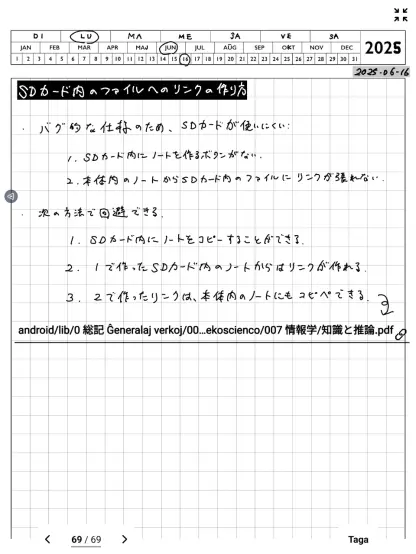 DI LU MA ME ĴA VE SA
JAN FEB MAR APR MAJ JUN JUL AŬG SEP OKT NOV DEC 2025
1 2 3 4 5 6 7 8 9 10 11 12 13 14 15 16 17 18 19 20 21 22 23 24 25 26 27 28 29 30 31
2025-06-16
SDカード内のファイルへのリンクの作り方
・バグ的な仕様のため、SDカードが使いにくい:
1. SDカード内にノートを作るボタンがない.
2. 本体内のノートからSDカード内のファイルにリンクが張れない.
・次の方法で回避できる.
1. SDカード内にノートをコピーすることができる.
2. 1で作ったSDカード内のノートからはリンクが作れる.
3. 2で作ったリンクは、本体内のノートにもコピペできる.
android/lib/0 総記 Ĝeneralaj verkoj/00...ekoscienco/007 情報学/知識と推論.pdf
69 / 69
Taga